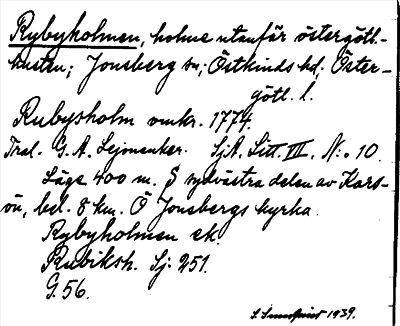 Rybyholmen, holme utanför östergötl.-
kusten; Jonsberg sn; Östkinds hd; Öster-
götl. l.
Rubysholm omkr. 1774.
Tral. G. A. Lejonanker. SjA. Litt. III, N:o 10.
Läge 400 m. S sydvästra delen av Kars-
ön, bel. 8 km. Ö Jonsbergs kyrka.
Rybyholmen ek.
Rubiksh. Sj: 251.
G. 56.
1939.